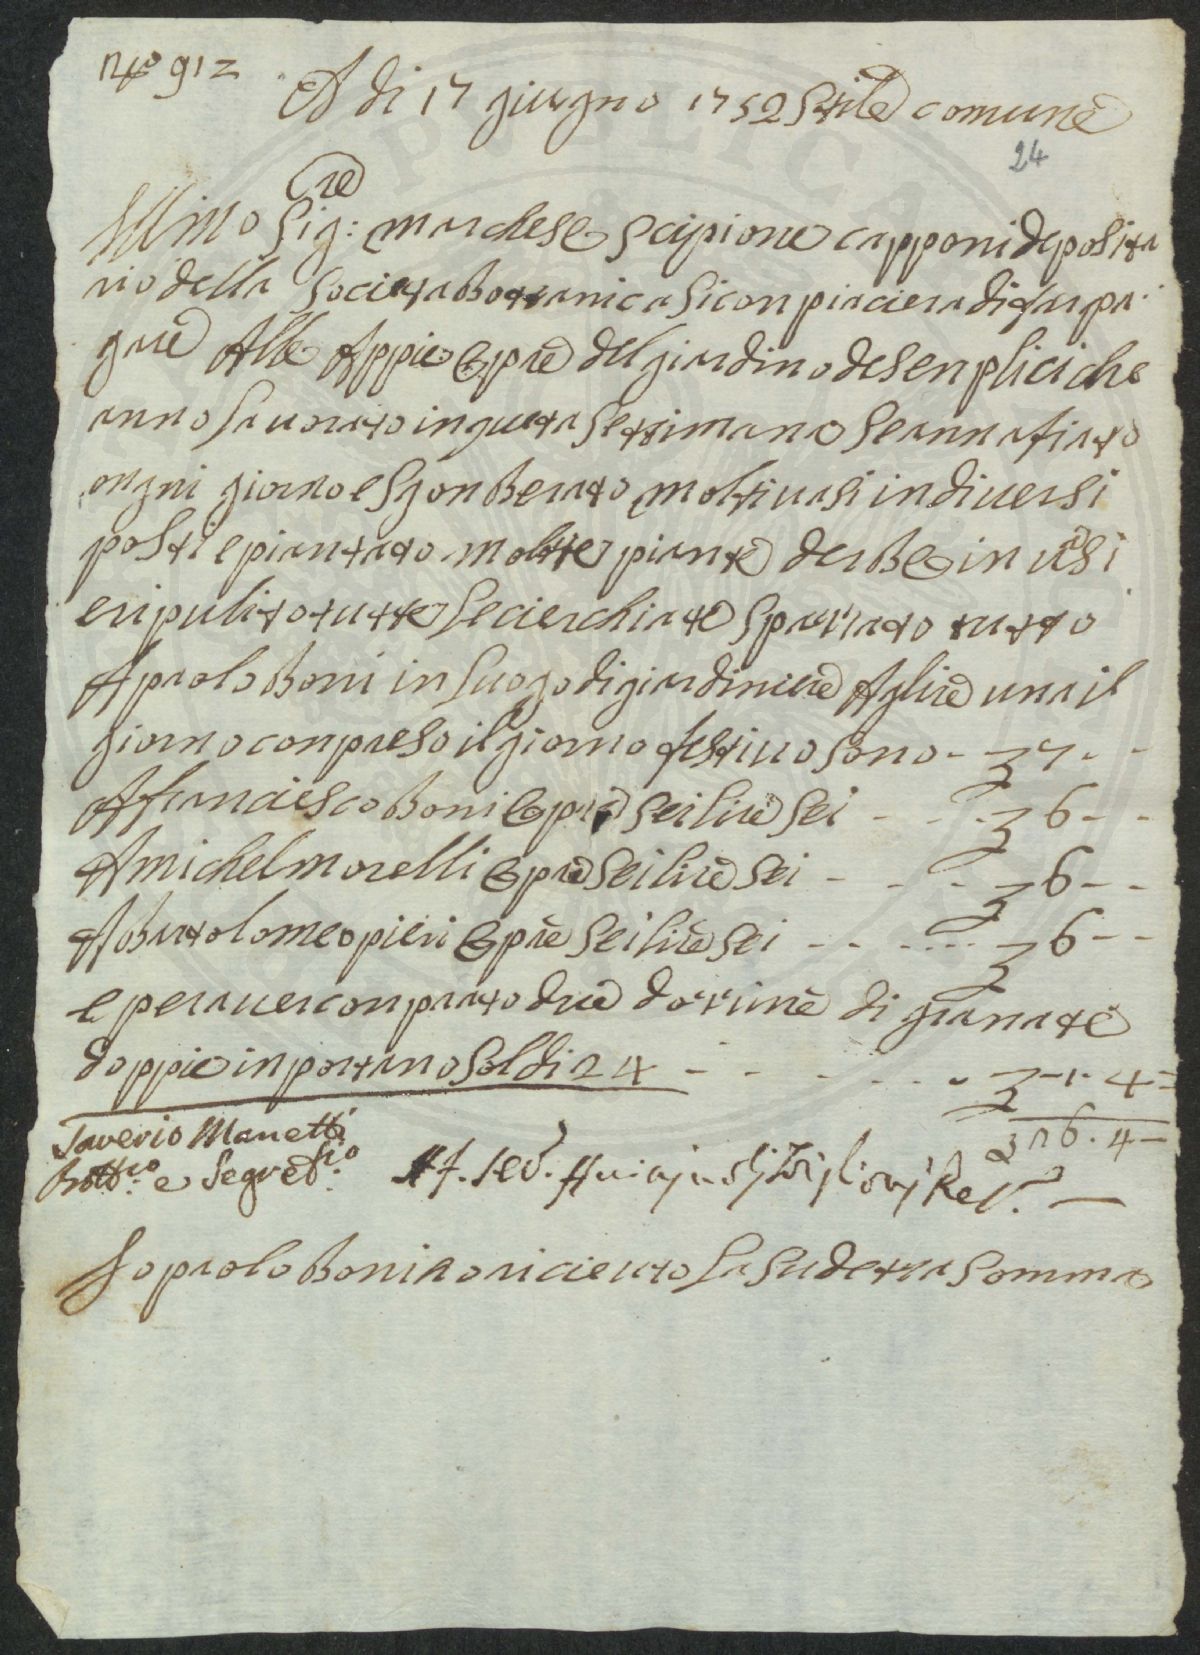 n.º 912
A di 17 giugno 1752 Stile comune
24
Ill:mo Sig:re marchese Scipione capponi deposita
rio della Societa Botanica si conpiaciera di far pa
gare Alle Appie Opre del giardino de Senplici che
anno lavorato in queta settimana e anno anafiato
ongni giorno e sgonberato molti vasi in diversi
posti e piantato molte piante d'erbe in vasi
e ripulito tutte le cierchiate spazzato tutto
A paolo Boni in luogo di giardiniere A lire una il
giorno conpreso il giorno festivo sono - £ 7 - -
A franciesco Boni Opre sei lire sei - - - £ 6 - -
A michel morelli Opre sei lire sei - - - £ 6 - -
A Bartolomeo pieri Opre sei lire sei - - - £ 6 - -
e per aver conprato due dozzine di granate
doppie inportano Soldi 24 - - - - - £ 1 . 4 =
£ 26 . 4 -
Saverio Manetti
Bott:co e Segret:rio
Io paolo Boni o riceuto la sudetta somma